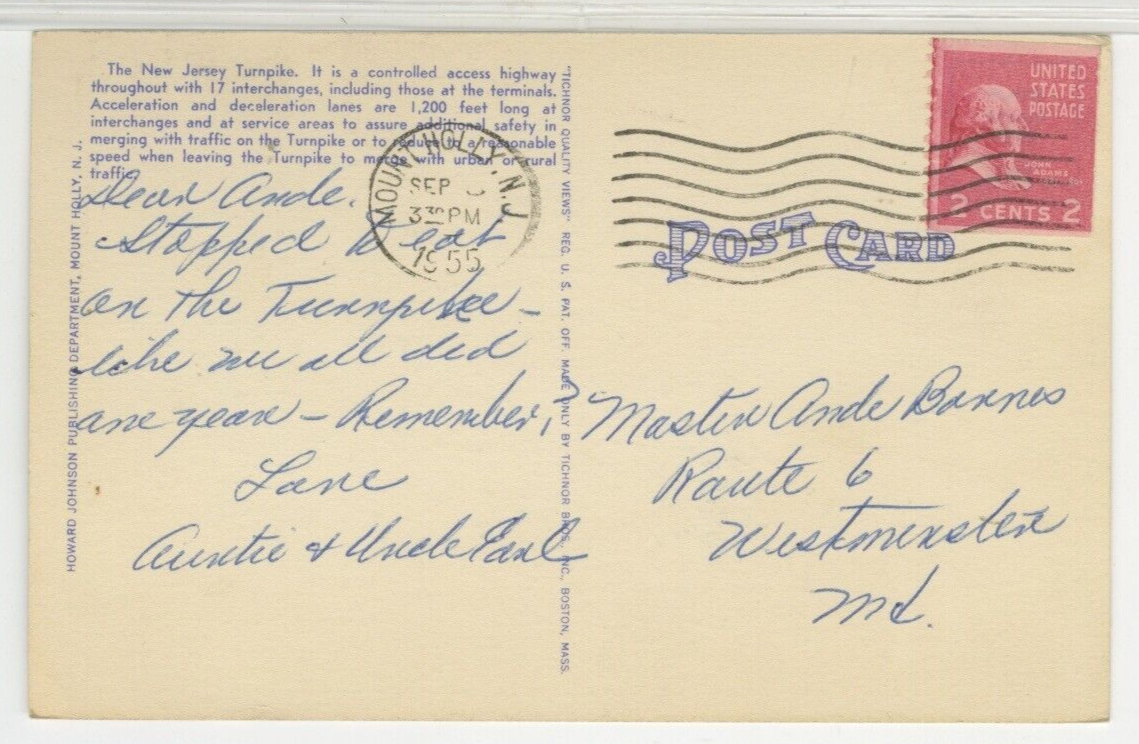 The New Jersey Turnpike. It is a controlled access highway
throughout with 17 interchanges, including those at the terminals.
Acceleration and deceleration lanes are 1,200 feet long at
interchanges and at service areas to assure additional safety in
merging with traffic on the Turnpike or to reduce to a reasonable
speed when leaving the Turnpike to merge with urban or rural
traffic.
HOWARD JOHNSON PUBLISHING DEPARTMENT, MOUNT HOLLY, N. J.
Dear Ande.
Stopped to eat
on the Turnpike –
like we all did
one year – Remember?
Love
Auntie & Uncle Earl
"TICHNOR QUALITY VIEWS" REG. U. S. PAT. OFF. MADE ONLY BY TICHNOR BROS., INC., BOSTON, MASS.
MOUNT HOLLY, N.J.
SEP
3 30 PM
1955
UNITED
STATES
POSTAGE
JOHN
ADAMS
2 CENTS 2
POST CARD
Master Ande Barnes
Route 6
Westminster
Md.